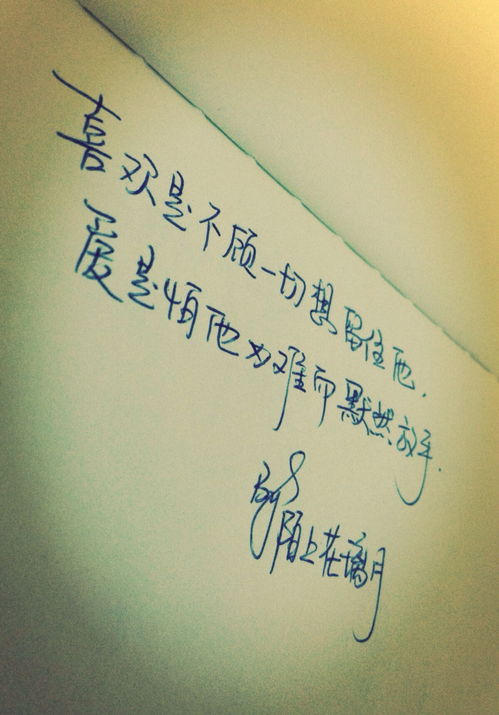 喜欢是不顾一切想留住他.
爱是怕他为难而默然放手.
By
陌上花璃月